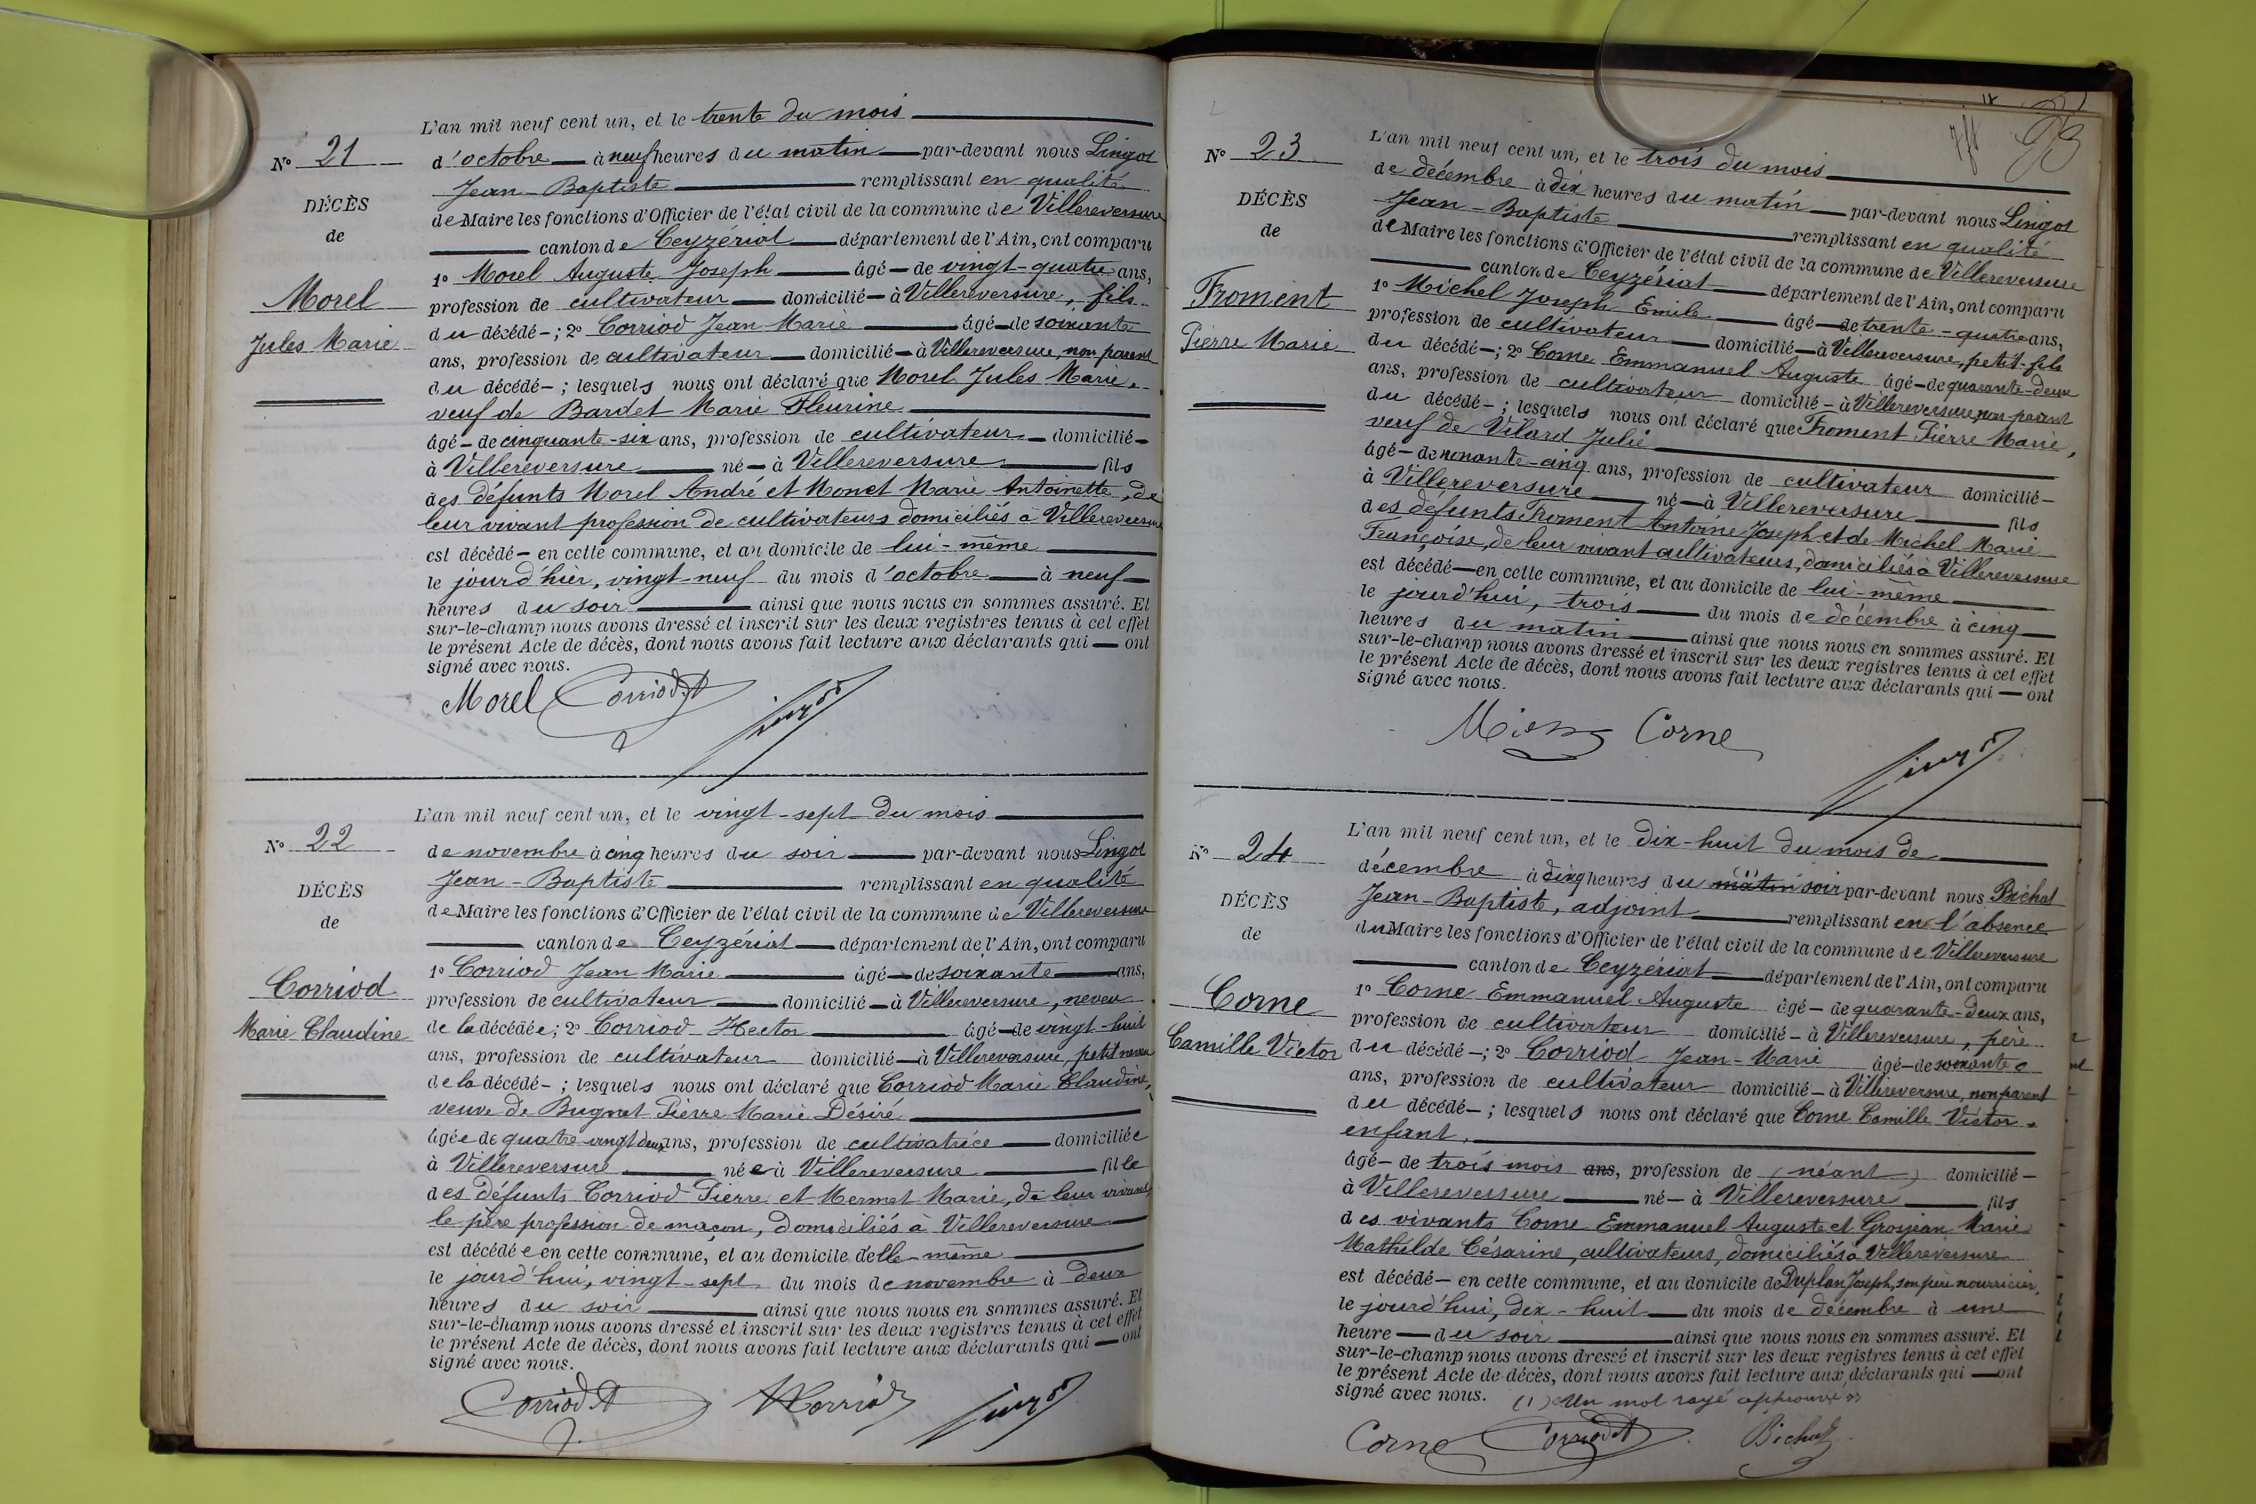 L'an mil neuf cent un, et le trente du mois
N° 21
d'octobre à neuf heures du matin par-devant nous Lingot
Jean-Baptiste remplissant en qualité
DÉCÈS
de
de Maire les fonctions d'Officier de l'état civil de la commune de Villereversure
canton de Ceyzériat département de l'Ain, ont comparu
1° Morel Auguste Joseph âgé de vingt-quatre ans,
Morel
Jules Marie
profession de cultivateur domicilié à Villereversure, fils
du décédé ; 2° Corriod Jean Marie âgé de soixante
ans, profession de cultivateur domicilié à Villereversure, non parent
du décédé ; lesquels nous ont déclaré que Morel Jules Marie,
veuf de Bardet Marie Fleurine
âgé de cinquante-six ans, profession de cultivateur domicilié
à Villereversure né à Villereversure fils
des défunts Morel André et Monet Marie Antoinette, de
leur vivant profession de cultivateurs domiciliés à Villereversure
est décédé en cette commune, et au domicile de lui-même
le jourd'hier, vingt-neuf du mois d'octobre à neuf
heures du soir ainsi que nous nous en sommes assuré. Et
sur-le-champ nous avons dressé et inscrit sur les deux registres tenus à cet effet
le présent Acte de décès, dont nous avons fait lecture aux déclarants qui ont
signé avec nous.
Morel Corriod
L'an mil neuf cent un, et le vingt-sept du mois
N° 22
de novembre à cinq heures du soir par-devant nous Lingot
Jean-Baptiste remplissant en qualité
DÉCÈS
de
de Maire les fonctions d'Officier de l'état civil de la commune de Villereversure
canton de Ceyzériat département de l'Ain, ont comparu
1° Corriod Jean Marie âgé de soixante ans,
Corriod
Marie Claudine
profession de cultivateur domicilié à Villereversure, neveu
de la décédée ; 2° Corriod Hector âgé de vingt-huit
ans, profession de cultivateur domicilié à Villereversure, petit neveu
de la décédé ; lesquels nous ont déclaré que Corriod Marie Claudine,
veuve de Bugnet Pierre Marie Désiré
âgée de quatre vingt deux ans, profession de cultivatrice domiciliée
à Villereversure née à Villereversure fille
des défunts Corriod Pierre et Mermet Marie, de leur vivant
le père profession de maçon, domiciliés à Villereversure
est décédée en cette commune, et au domicile d'elle-même
le jourd'hui, vingt-sept du mois de novembre à deux
heures du soir ainsi que nous nous en sommes assuré. Et
sur-le-champ nous avons dressé et inscrit sur les deux registres tenus à cet effet
le présent Acte de décès, dont nous avons fait lecture aux déclarants qui ont
signé avec nous.
Corriod H Corriod
L'an mil neuf cent un, et le trois du mois
N° 23
de décembre à dix heures du matin par-devant nous Lingot
Jean-Baptiste remplissant en qualité
DÉCÈS
de
de Maire les fonctions d'Officier de l'état civil de la commune de Villereversure
canton de Ceyzériat département de l'Ain, ont comparu
1° Michel Joseph Emile âgé de trente-quatre ans,
Froment
Pierre Marie
profession de cultivateur domicilié à Villereversure, petit-fils
du décédé ; 2° Corne Emmanuel Auguste âgé de quarante-deux
ans, profession de cultivateur domicilié à Villereversure, non parent
du décédé ; lesquels nous ont déclaré que Froment Pierre Marie,
veuf de Vilard Julie
âgé de nonante-cinq ans, profession de cultivateur domicilié
à Villereversure né à Villereversure fils
des défunts Froment Antoine Joseph et de Michel Marie
Françoise, de leur vivant cultivateurs, domiciliés à Villereversure
est décédé en cette commune, et au domicile de lui-même
le jourd'hui, trois du mois de décembre à cinq
heures du matin ainsi que nous nous en sommes assuré. Et
sur-le-champ nous avons dressé et inscrit sur les deux registres tenus à cet effet
le présent Acte de décès, dont nous avons fait lecture aux déclarants qui ont
signé avec nous.
Corne
L'an mil neuf cent un, et le dix-huit du mois de
N° 24
décembre à heures du matin soir par-devant nous Bichat
Jean-Baptiste, adjoint remplissant en l'absence
DÉCÈS
de
du Maire les fonctions d'Officier de l'état civil de la commune de Villereversure
canton de Ceyzériat département de l'Ain, ont comparu
1° Corne Emmanuel Auguste âgé de quarante-deux ans,
Corne
Camille Victor
profession de cultivateur domicilié à Villereversure, père
du décédé ; 2° Corriod Jean-Marie âgé de soixante
ans, profession de cultivateur domicilié à Villereversure, non parent
du décédé ; lesquels nous ont déclaré que Corne Camille Victor,
enfant,
âgé de trois mois ans, profession de (néant) domicilié
à Villereversure né à Villereversure fils
des vivants Corne Emmanuel Auguste et Grosjean Marie
Mathilde Césarine, cultivateurs, domiciliés à Villereversure
est décédé en cette commune, et au domicile de Duplan Joseph, son père nourricier,
le jourd'hui, dix-huit du mois de décembre à une
heure du soir ainsi que nous nous en sommes assuré. Et
sur-le-champ nous avons dressé et inscrit sur les deux registres tenus à cet effet
le présent Acte de décès, dont nous avons fait lecture aux déclarants qui ont
signé avec nous. (1) Un mot rayé approuvé
Corne Corriod Bichat